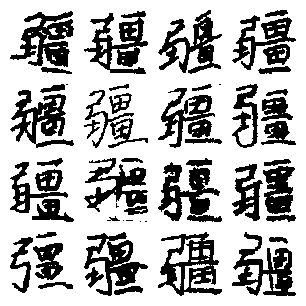 疆疆疆疆
疆疆疆疆
疆疆疆疆
疆疆疆疆